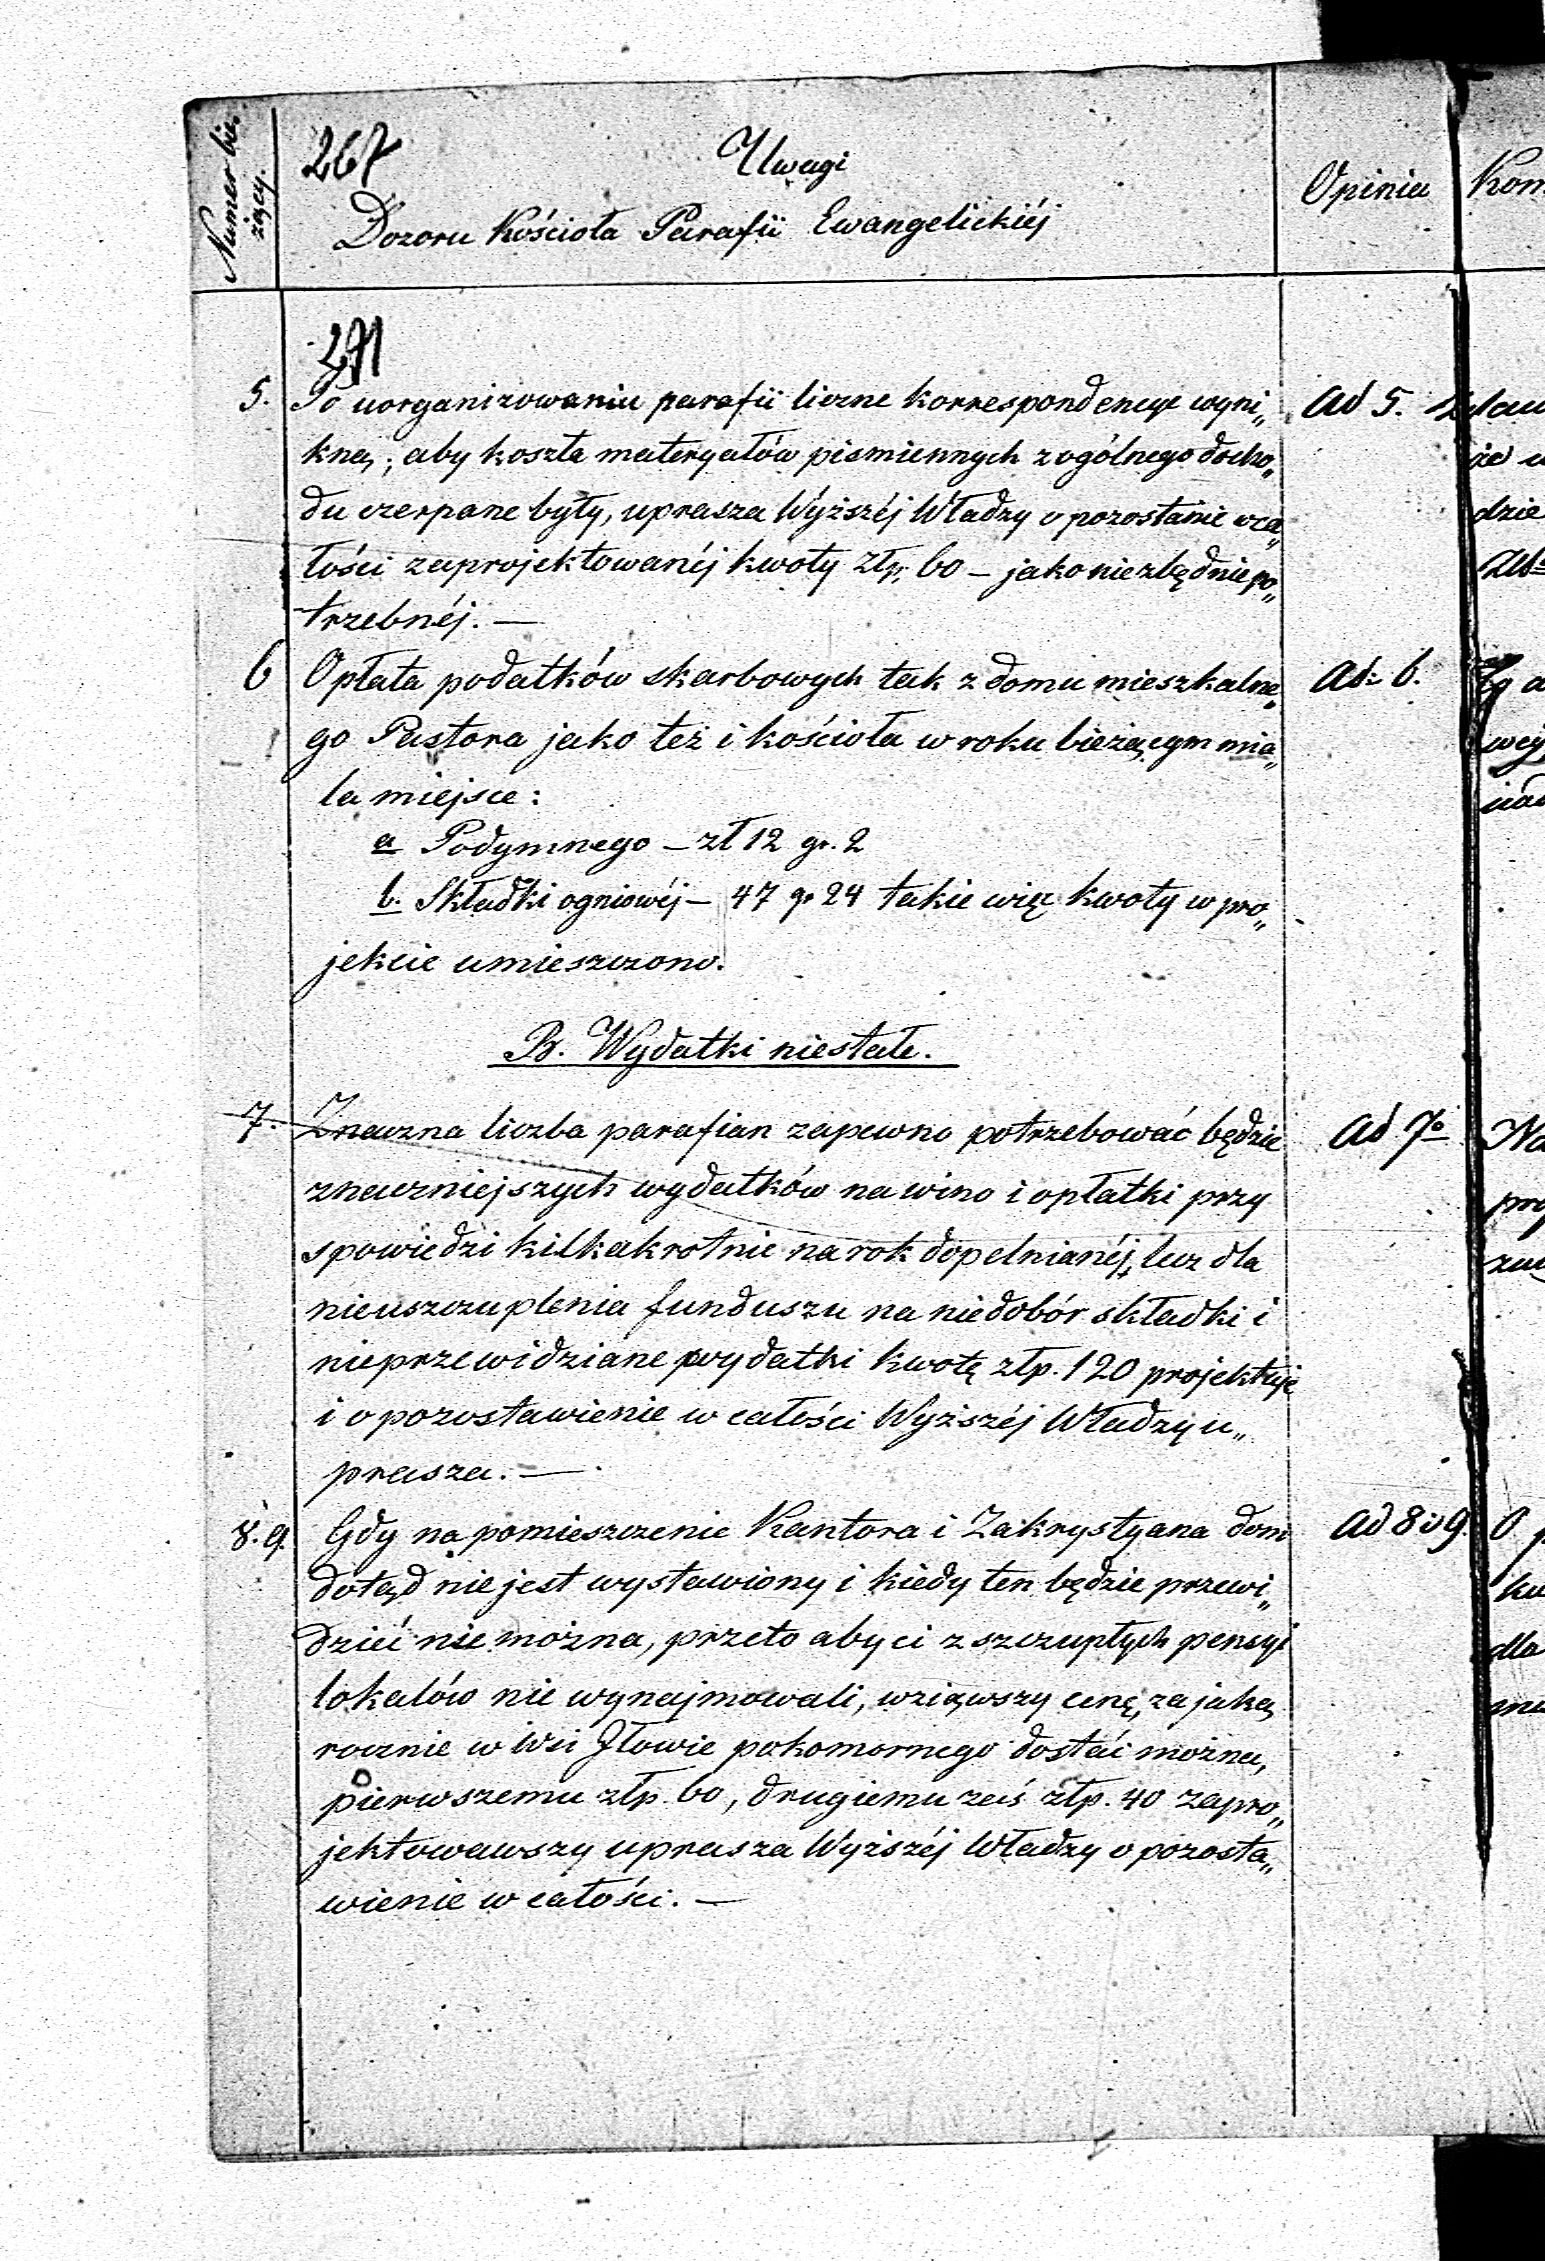 Numer bie,
żący.
267
Uwagi
Dozoru Kościoła Parafii Ewangelickiéj
Opinia
Kom
271
5. Po uorganizowaniu parafii liczne korrespondencye wyni„
kną; aby koszta materyałów piśmiennych z ogólnego docho„
du czerpane były, uprasza Wyższéj Władzy o pozostanie w ca„
łości zaprojektowanéj kwoty Złp. 60 – jako niezbędnie po„
trzebnéj. —
Ad 5.
że
dzie
6 Opłata podatków skarbowych tak z domu mieszkalne„
go Pastora jako też i kościoła w roku bieżącym mia„
la miejsce:
a Podymnego – zł 12 gr. 2
b. Składki ogniowéj – 47 gr 24 takie więc kwoty w pro„
jekcie umieszczono.
Ad. 6.
B. Wydatki niestałe.
7. Znaczna liczba parafian zapewno potrzebować będzie
znaczniejszych wydatków na wino i opłatki przy
spowiedzi kilkakrotnie na rok dopelnianéj, lecz dla
nieuszczuplenia funduszu na niedobór składki i
nieprzewidziane wydatki kwotę złp. 120 projektuje
i o pozostawienie w całości Wyższéj Władzy u„
prasza. —
Ad 7o
Na
8. 9. Gdy na pomieszczenie Kantora i Zakrystyana dom
dotąd nie jest wystawiony i kiedy ten będzie przewi„
dzieć nie można, przeto aby ci z szczupłych pensyi
lokalów nie wynajmowali, wziąwszy cenę, za jaką
rocznie w Wsi Iłowie pokomornego dostać można,
pierwszemu złp. 60, drugiemu zaś złp. 40 zapro„
jektowawszy uprasza Wyższéj Władzy o pozosta„
wienie w całości. —
Ad 8 i 9.
O
dla